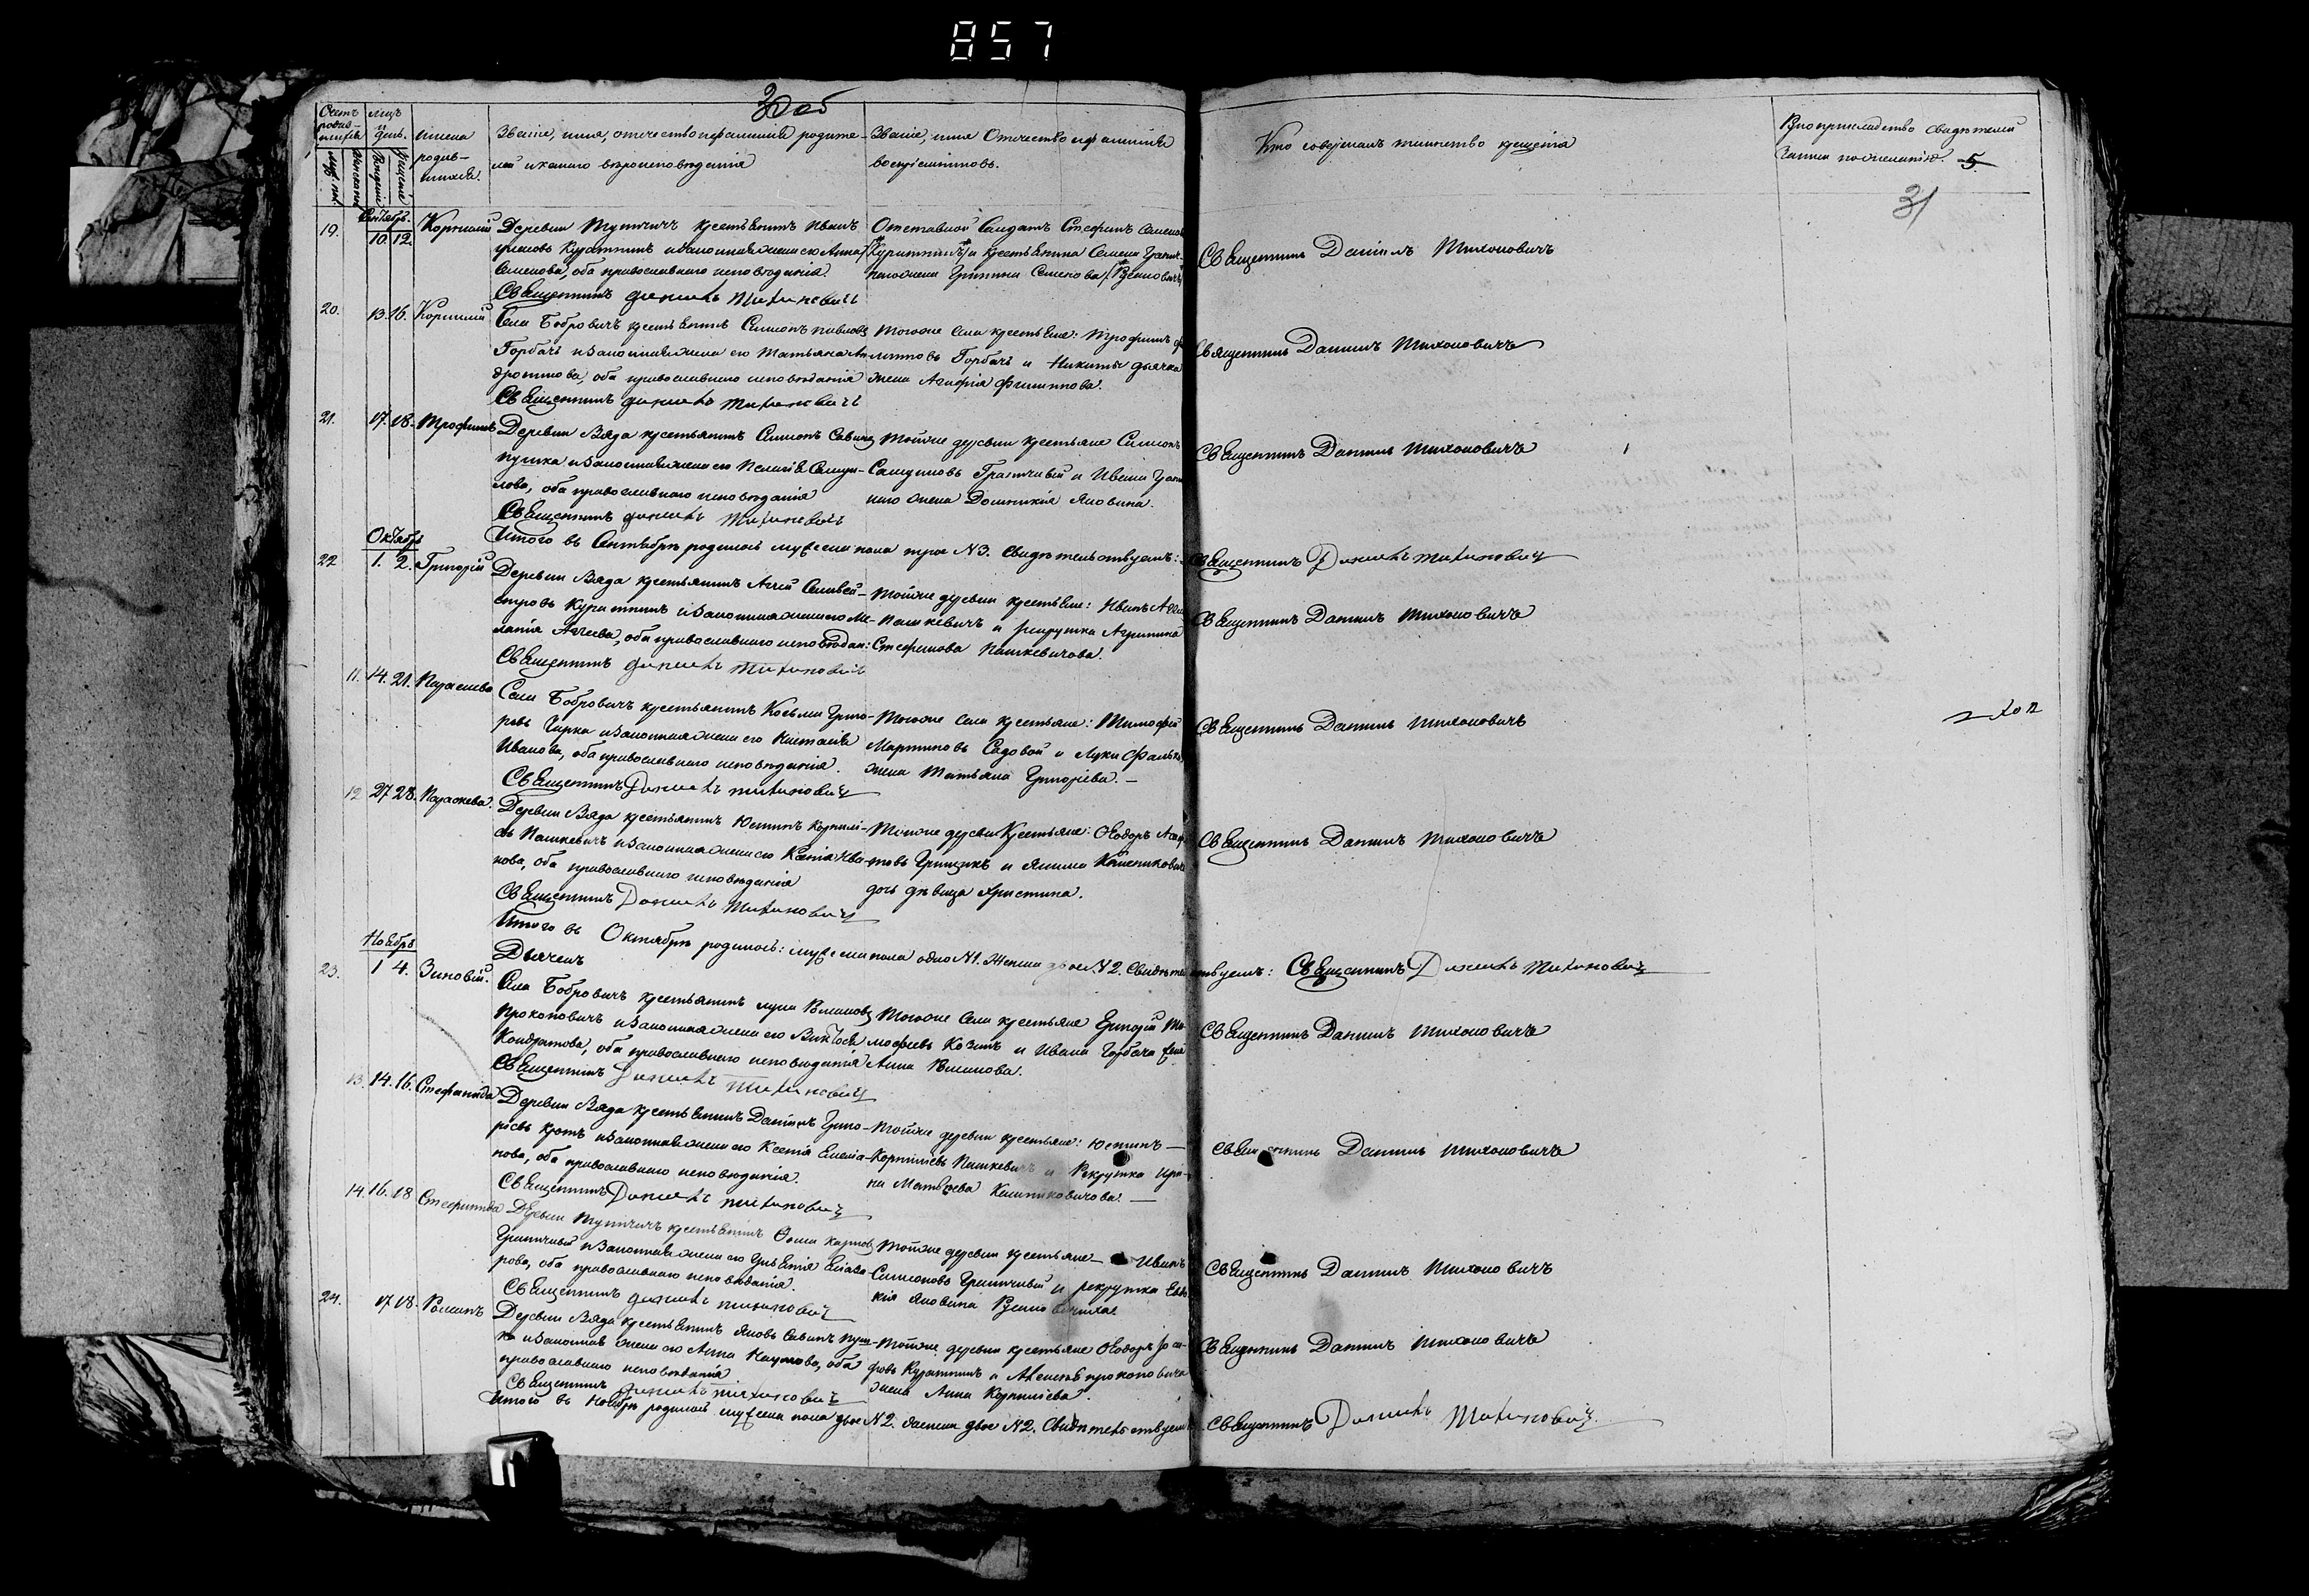 857
30 об
Счетъ родив-шихся
Муж. пол.
Женскаго
мцъ и день.
Рожденія
Крещенія
Имена родив-шихся.
Званіе, имя, отчество и фамилія родите-
лей и какого вѣроисповѣданія
Званіе, имя Отчество и фамилія
воспріемниковъ.
Кто совершалъ таинство крещенія
Рукоприкладство свидѣтелей
записи по желанію. 5
31
Сентябрь
19. 10. 12. Корнилій
Деревни Тупчичъ крестьянинъ Иванъ
и законная жена его Анна
Семенова, оба православнаго исповѣданія
Священникъ Даніилъ Тихановичъ
Отставной Солдатъ Стефанъ Семеновъ
и крестьянина Семена
жена Семенова
Священникъ Даніилъ Тихоновичъ
20. 13. 16. Корнилій
Села Бобровичъ крестьянинъ Симеонъ Павловъ
Горбачъ и законная жена его Татьяна Ан-
дронова, оба православнаго исповѣданія
Священникъ Даніилъ Тихановичъ
Тогоже села крестьяне: Трофимъ Фи-
липповъ Горбачъ и Никиты дьячка
жена Агафія Филиппова.
Священникъ Даніилъ Тихоновичъ
21. 17. 18. Трофимъ
Деревни Вяда крестьянинъ Симеонъ Савинъ
Пушка и законная жена его Пелагія Самуи-
лова, оба православнаго исповѣданія
Священникъ Даніилъ Тихановичъ
Тойже деревни крестьяне Симеонъ
Самуиловъ Граничный и Ивана
жена Домникія Яковина.
Священникъ Даніилъ Тихоновичъ
Итого въ Сентябрѣ родилось мужеска пола трое N 3. Свидѣтельствуемъ:
Священникъ Даніилъ Тихановичъ
Октябрь
22. 1. 2. Григорій
Деревни Вяда крестьянинъ Аггей Селивес-
тровъ и законная жена его Ме-
ланія Аггеева, оба православнаго исповѣдан:
Священникъ Даніилъ Тихановичъ
Тойже деревни крестьяне: Иванъ
Пашкевичъ и рекрутка Агрипина
Стефанова Пашкевичова.
Священникъ Даніилъ Тихоновичъ
11. 14. 21. Параскева
Села Бобровичъ крестьянинъ Козьма Григо-
рьевъ Чирка и законная жена его Настасія
Иванова, оба православнаго исповѣданія.
Священникъ Даніилъ Тихановичъ
Тогоже села крестьяне: Тимофей
Мартиновъ Садовой и Луки
жена Татьяна Григорьева.—
Священникъ Даніилъ Тихоновичъ
12. 27. 28. Параскева.
Деревни Вяда крестьянинъ Юстинъ Корнилі-
евъ Пашкевичъ и законная жена его Ксенія Ива-
нова, оба православнаго исповѣданія
Священникъ Даніилъ Тихановичъ
Тойже деревни Крестьяне: Ѳеодоръ
Грищикъ и Якима
дочь дѣвица Христина.
Священникъ Даніилъ Тихоновичъ
Итого въ Октябрѣ родилось: мужеска пола одно N 1. Женска двое N 2. Свидѣтельствуемъ: Священникъ Даніилъ Тихановичъ
Дьячекъ
Ноябрь
23. 1. 4. Зиновій.
Села Бобровичъ крестьянинъ Лука Романовъ
Прокоповичъ и законная жена его
Кондратова, оба православнаго исповѣданія
Священникъ Даніилъ Тихановичъ
Тогоже села крестьяне Григорій Ти-
мофеевъ Козинъ и Ивана Горбача жена
Анна Романова.
Священникъ Даніилъ Тихоновичъ
13. 14. 16. Стефанида
Деревни Вяда крестьянинъ Даніилъ Григо-
ріевъ Кротъ и законная жена его Ксенія
оба православнаго исповѣданія.
Священникъ Даніилъ Тихановичъ
Тойже деревни крестьяне: Юстинъ —
Корниліевъ Пашкевичъ и Рекрутка Ири-
на Матѳеева
Священникъ Даніилъ Тихоновичъ
14. 16. 18. Стефанида
Деревни Тупчичъ крестьянинъ Ѳома Карповъ
Граничный и законная жена его
оба православнаго исповѣданія.
Священникъ Даніилъ Тихановичъ
Тойже деревни крестьяне — Иванъ
Симеоновъ Граничный и рекрутка Евдо-
кія Яковина
Священникъ Даніилъ Тихоновичъ
24. 17. 18. Романъ
Деревни Вяда крестьянинъ Яковъ Савинъ Пуш-
ка и законная жена его Анна Наумова, оба
православнаго исповѣданія
Священникъ Даніилъ Тихановичъ
Тойже деревни крестьяне Ѳеодоръ Іоси-
фовъ и Алексѣя Прокоповича
жена Анна Корниліева.
Священникъ Даніилъ Тихоновичъ
Итого въ Ноябрѣ родилось мужеска пола двое N 2. Женска двое N 2. Свидѣтельствуемъ
Священникъ Даніилъ Тихановичъ